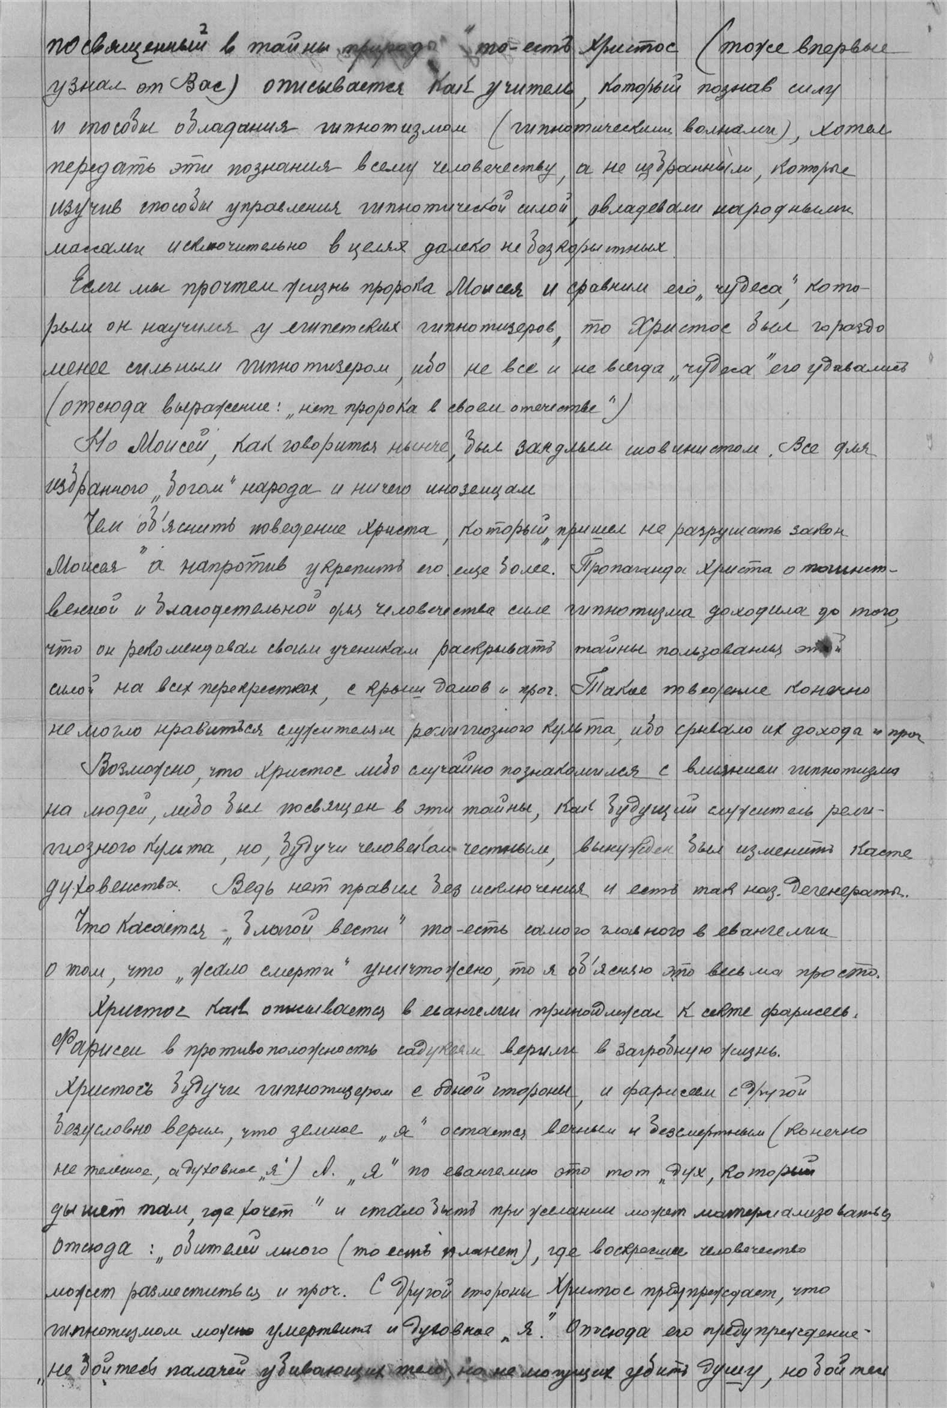 2
посвященный в тайны природы" то-есть Христос (тоже впервые
узнал от Вас) описывается как учитель, который познав силу
и способы обладания гипнотизмом (гипнотическими волнами), хотел
передать эти познания всему человечеству, а не избранным, которые
изучив способы управления гипнотической силой, овладевали народными
массами исключительно в целях далеко не безкорыстных.
Если мы прочтем жизнь пророка Моисея и сравним его „чудеса", кото-
рым он научился у египетских гипнотизеров, то Христос был гораздо
менее сильным гипнотизером, ибо не все и не всегда „чудеса" его удавались
(отсюда выражение: „нет пророка в своем отечестве")
Но Моисей, как говорится нынче, был заядлым шовинистом. Все для
избранного „богом" народа и ничего иноземцам
Чем об'яснить поведение Христа, который „пришел не разрушать закон
Моисея" а напротив укрепить его еще более. Пропаганда Христа о таинст-
венной и благодетельной для человечества силе гипнотизма доходила до того,
что он рекомендовал своим ученикам раскрывать тайны пользования этой
силой на всех перекрестках, с крыш домов и проч. Такое поведение конечно
не могло нравиться служителям религиозного культа, ибо срывало их дохода и проч
Возможно, что Христос либо случайно познакомился с влиянием гипнотизма
на людей, либо был посвящен в эти тайны, как будущий служитель рели-
гиозного культа, но, будучи человеком честным, вынужден был изменить касте
духовенства. Ведь нет правил без исключения и есть так наз. дегенераты.
Что касается - „благой вести" то-есть самого главного в евангелии
о том, что „жало смерти" уничтожено, то я об'ясняю это весьма просто.
Христос как описывается в евангелии принадлежал к секте фарисеев.
Фарисеи в противоположность садукеям верили в загробную жизнь.
Христос будучи гипнотизером с одной стороны, и фарисеем с другой
безусловно верил, что земное „я" остается вечным и безсмертным (конечно
не телесное, а духовное „я") А. „я" по евангелию это тот „дух, который
дышет там, где хочет" и стало быть при желании может материализоваться
Отсюда: „обителей много (то есть планет), где воскресшее человечество
может разместиться и проч. С другой стороны Христос предупреждает, что
гипнотизмом можно умертвить и духовное „я." Отсюда его предупреждение-
„не бойтесь палачей убивающих тело, но не могущих убить душу, но бойтесь